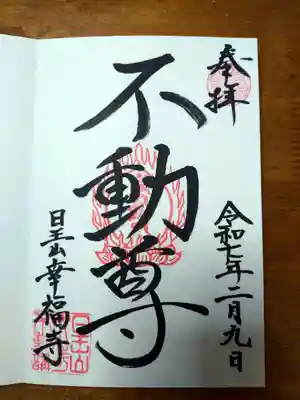 奉拝
令和七年二月九日
不動尊
日王山幸福寺